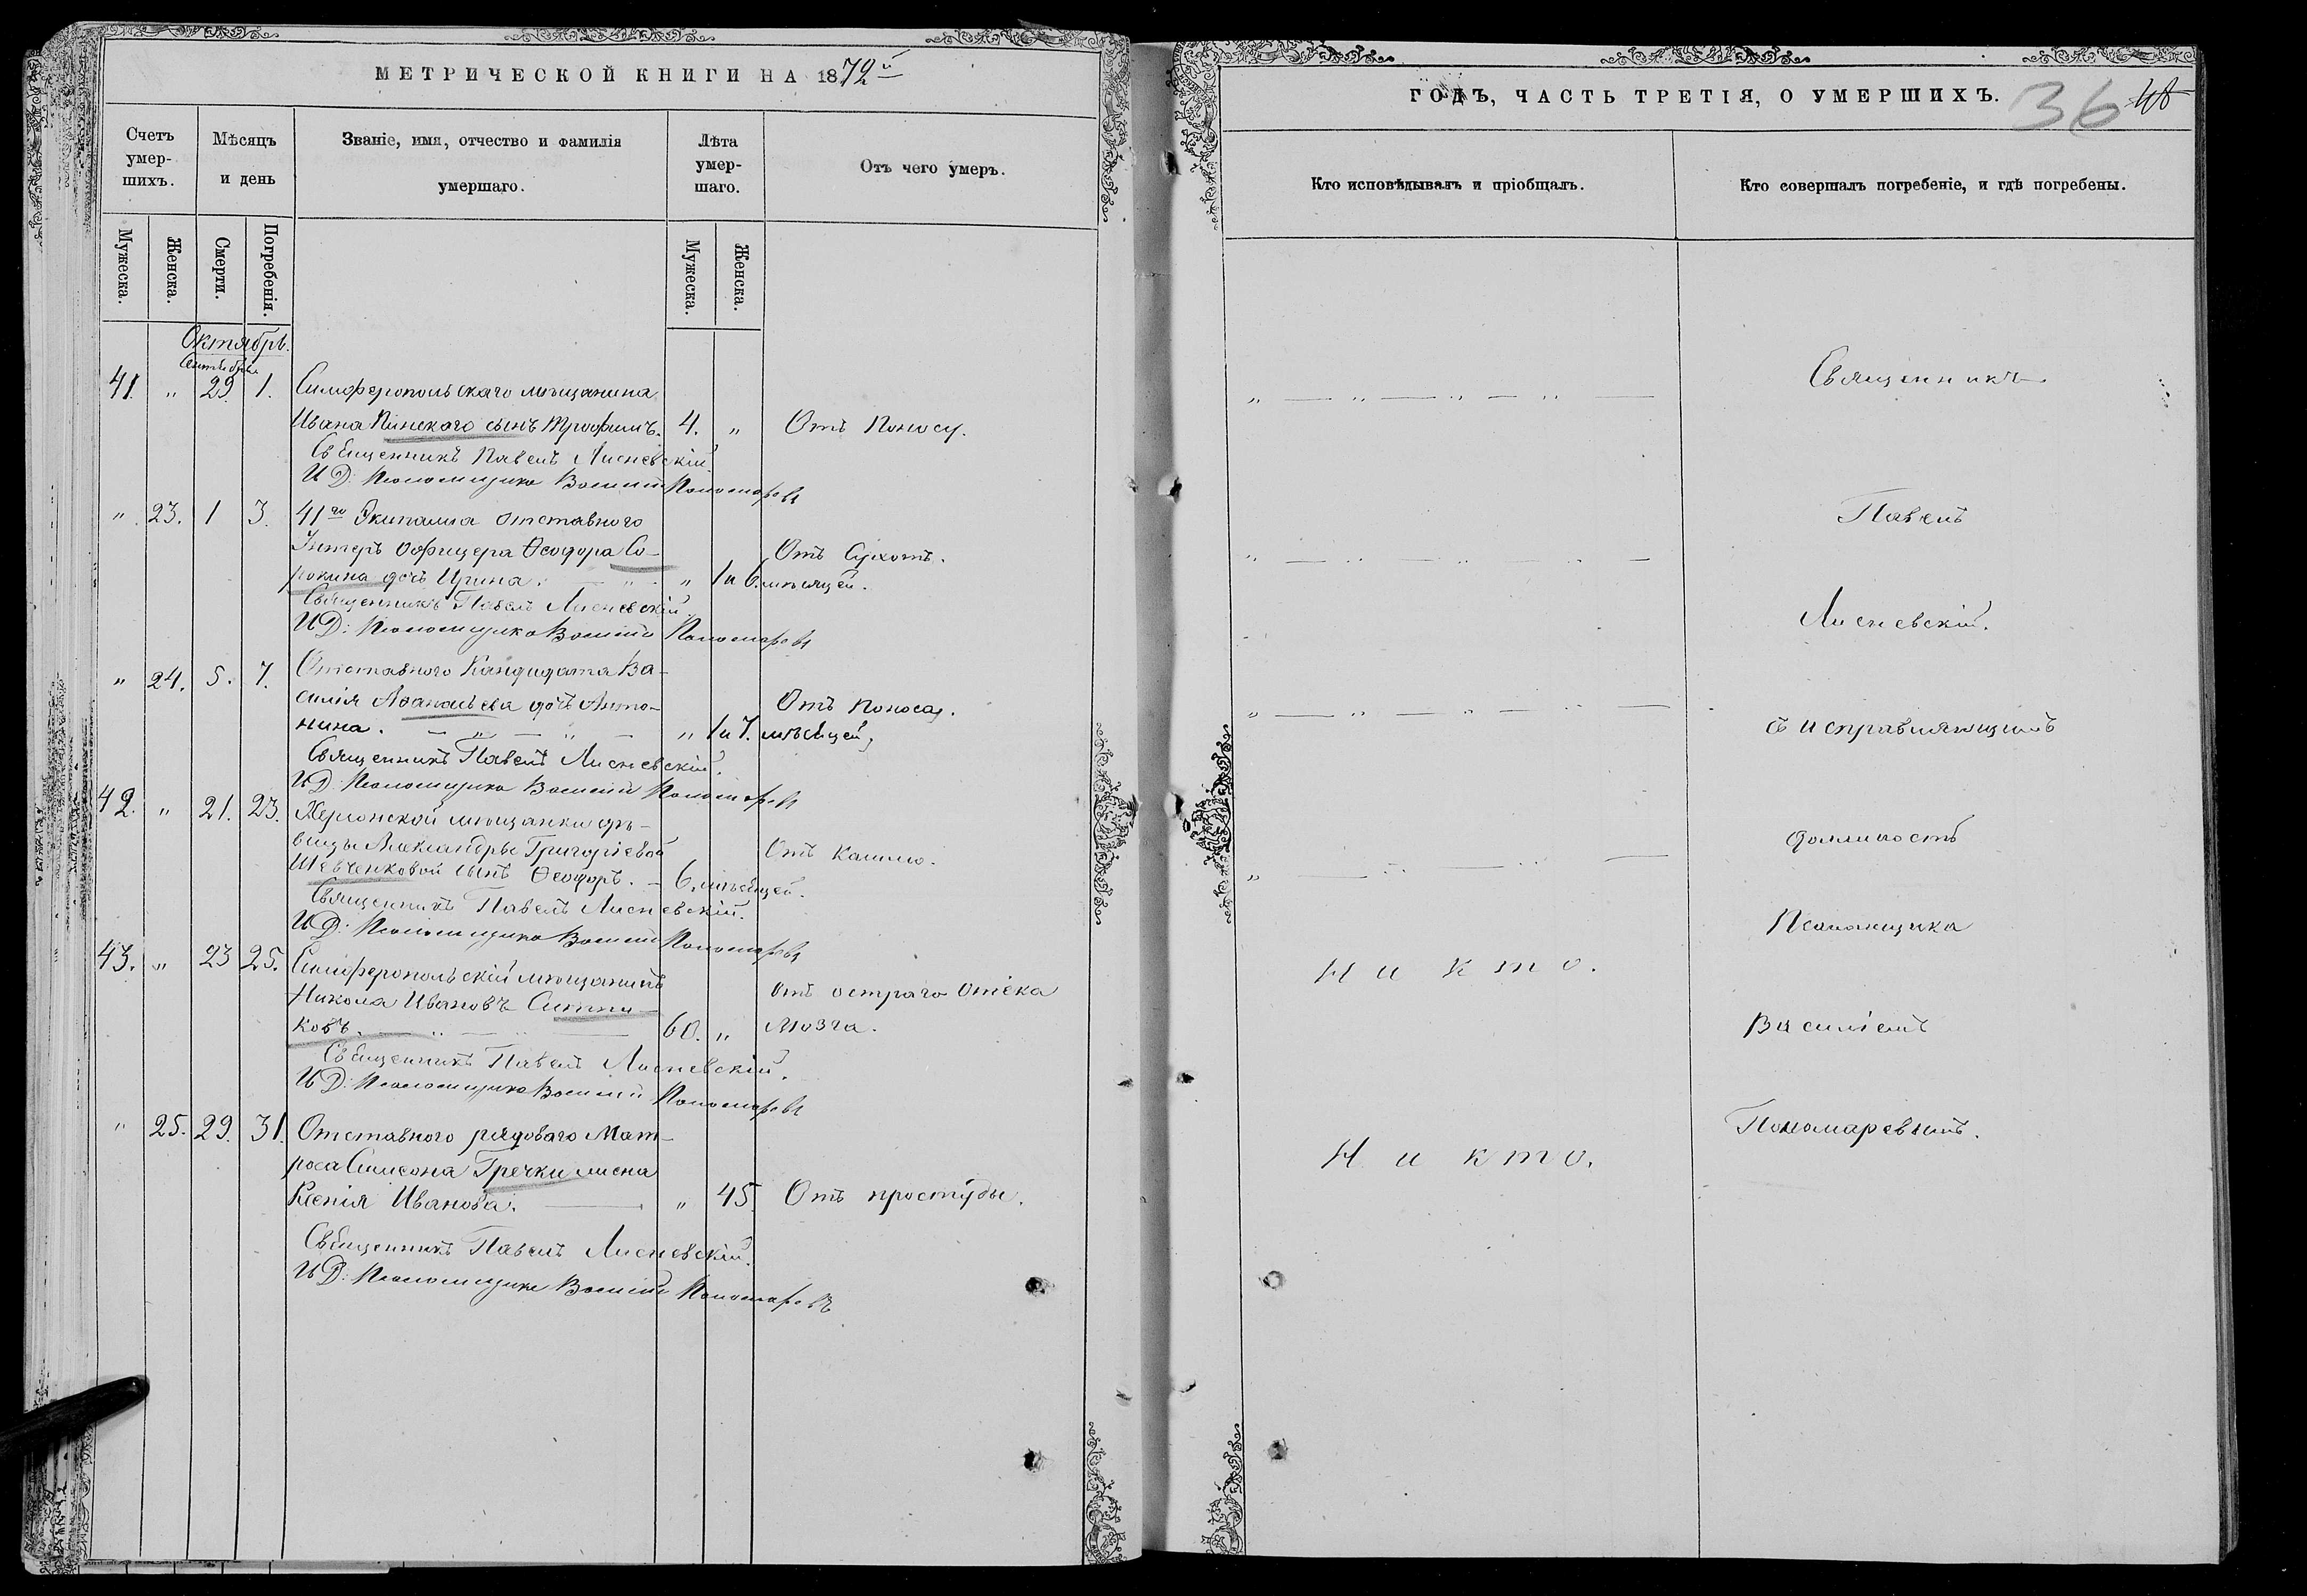 МЕТРИЧЕСКОЙ КНИГИ НА 1872й
Счетъ умер-шихъ.
Мѣсяцъ и день
Званіе, имя, отчество и фамилія умершаго.
Лѣта умер-шаго.
Отъ чего умеръ.
Мужеска.
Женска.
Смерти.
Погребенія.
Мужеска.
Женска.
Октябрь.
Сентября
41. " 29. 1. Симферопольскаго мѣщанина
Ивана Пинского сынъ Трофимъ. 4. " Отъ поносу.
Священникъ Павелъ Лисневскій.
И Д: Псаломщика Василій Пономаревъ
" 23. 1 3. 41го Экипажа отставного
Унтеръ Оофицера Ѳеодора Со-
рокина дочь Ирина. " 1 и 6. мѣсяцей.
Отъ Сухотъ.
Священникъ Павелъ Лисневскій.
И Д: Псаломщика Василій Пономаревъ
" 24. 5. 7. Отставного Кандидата Ва-
силія Аѳанасьева дочь Анто-
нина. " 1 и 7. мѣсяцей,
Отъ поноса.
Священникъ Павелъ Лисневскій.
И Д: Псаломщика Василій Пономаревъ
42. " 21. 23. Херсонской мѣщанки дѣ-
вицы Александры Григоріевой
Шевченковой сынъ Ѳеодоръ. 6. мѣсяцей.
Отъ кашлю.
Священникъ Павелъ Лисневскій.
И Д: Псаломщика Василій Пономаревъ
43. " 23 25. Симферопольскій мѣщанинъ
Никола Ивановъ Ситни-
ковъ. 60. "
Отъ остраго отёка
мозга.
Священникъ Павелъ Лисневскій.
И Д: Псаломщика Василій Пономаревъ
" 25. 29. 31. Отставного рядоваго Мат-
роса Симеона Гречки жена
Ксенія Иванова. " 45. Отъ простуды.
Священникъ Павелъ Лисневскій.
И Д: Псаломщика Василій Пономаревъ
ГОДЪ, ЧАСТЬ ТРЕТІЯ, О УМЕРШИХЪ.
36
Кто исповѣдывалъ и пріобщалъ.
Кто совершалъ погребеніе, и гдѣ погребены.
Священникъ
Павелъ
Лисневскій.
съ исправляющимъ
должность
Псаломщика
Никто.
Василіемъ
Пономаревымъ.
Никто.